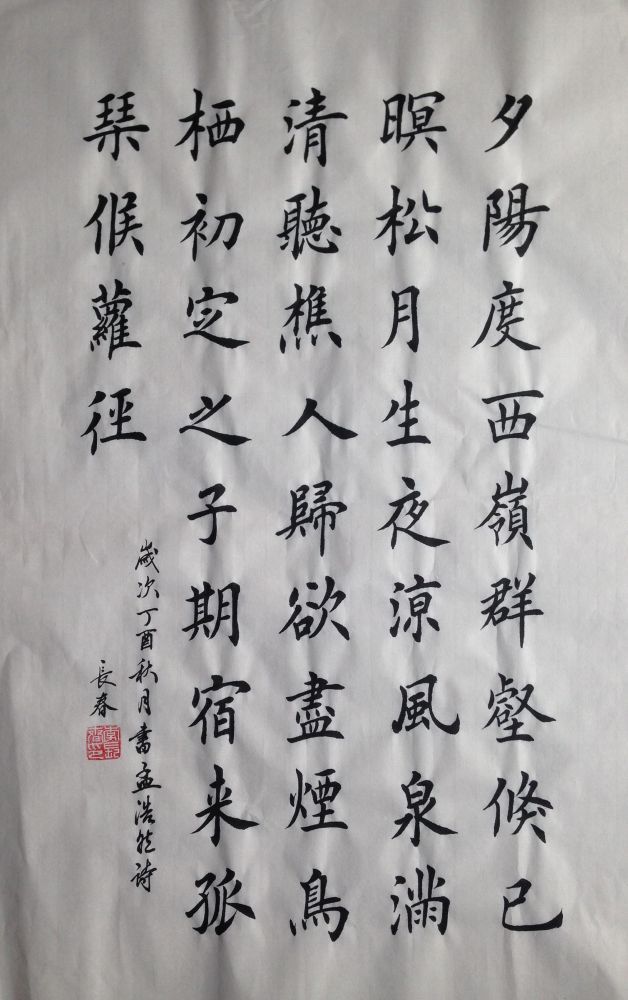 夕陽度西嶺群壑倏已
暝松月生夜涼風泉滿
清聽樵人歸欲盡煙鳥
栖初定之子期宿来孤
琹候蘿徑
歲次丁酉秋月書孟浩然詩
長春